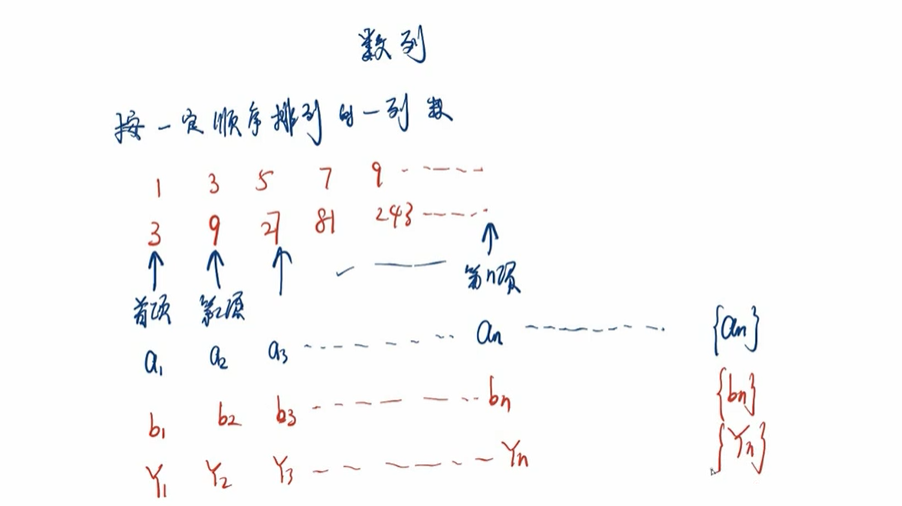 数列
按一定顺序排列的一列数
1 3 5 7 9 ……
3 9 27 81 243 ……
首项 第2项 第n项
a₁ a₂ a₃ …… aₙ …… {aₙ}
b₁ b₂ b₃ …… bₙ {bₙ}
Y₁ Y₂ Y₃ …… Yₙ {Yₙ}